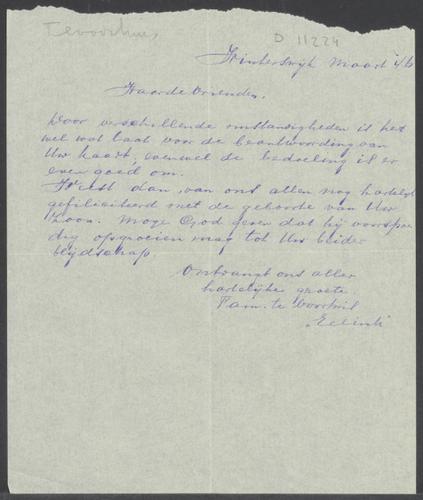 D 11224
Winterswijk Maart
Waarde Vrienden.
Door verschillende omstandigheden is het
wel wat laat voor de beantwoording van
Uw kaart, evenwel de bedoeling is er
even goed om.
Weest dan van ons allen nog hartelijk
gefiliciteerd met de geboorte van Uw
Zoon. Moge God geven dat hij voorspoe
dig opgroeien mag tot Uw beider
blijdschap
Ontvangt ons aller
hartelijke groete.
Fam. te